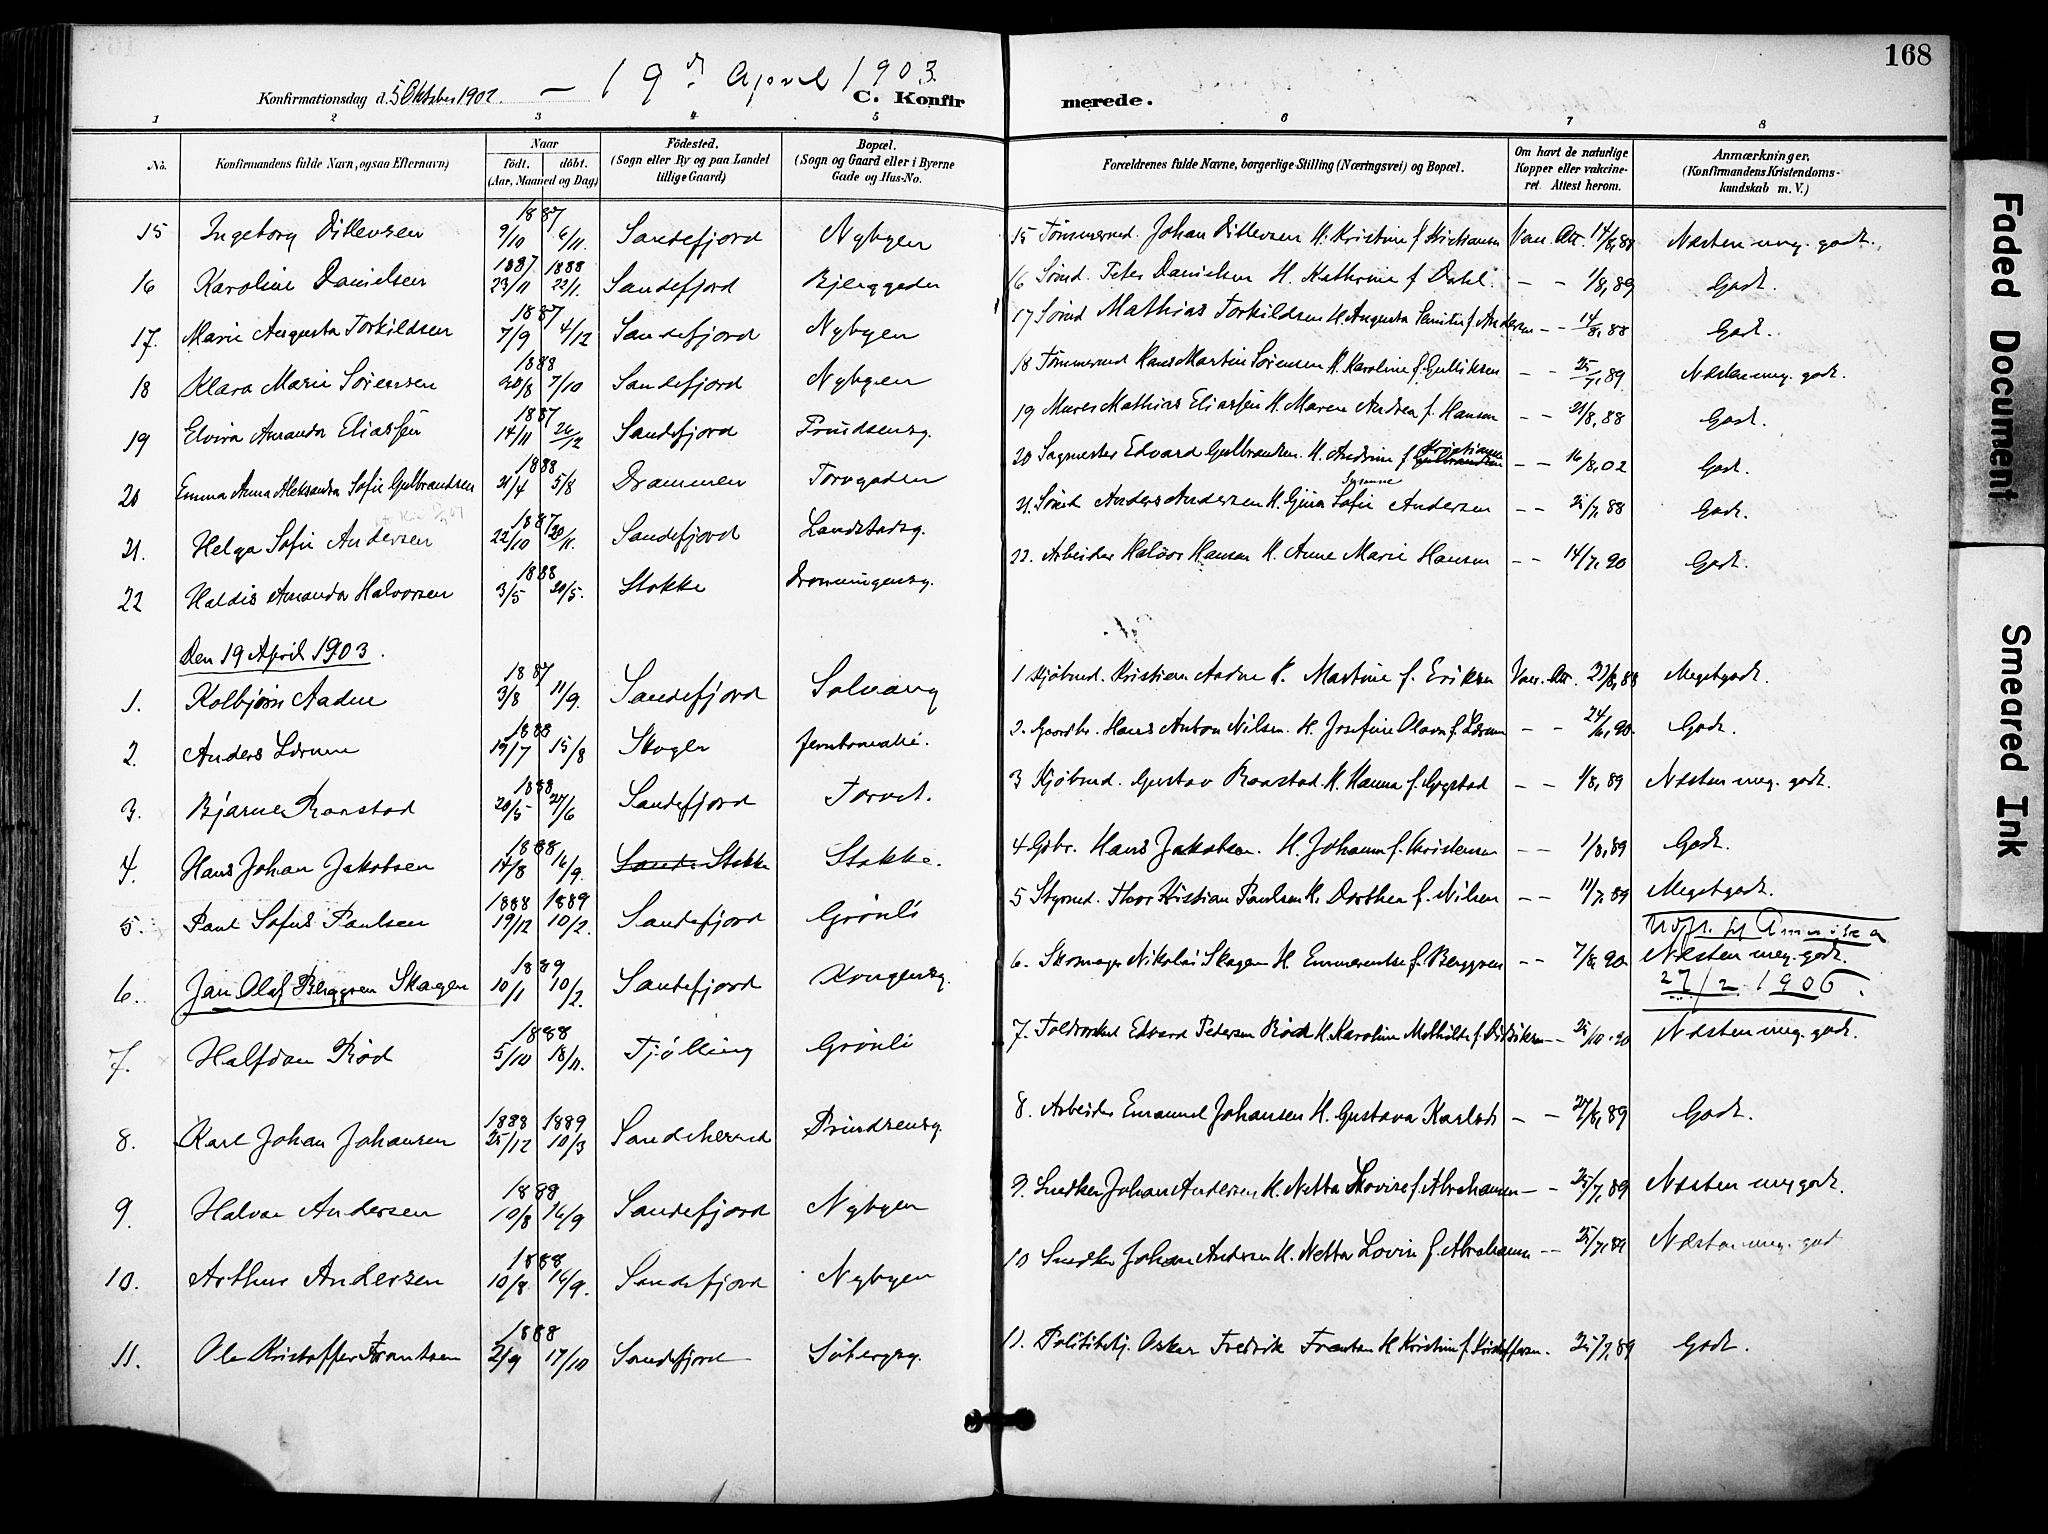 168
Konfirmationsdag d. 5 Oktober 1902. — 19de April 1903
C. Konfirmerede.
1 2 3 4 5 6 7 8
No.
Konfirmandens fulde Navn, ogsaa Efternavn)
Naar
födt. döbt.
(Aar, Maaned og Dag)
Födested.
(Sogn eller By og paa Landet
tillige Gaard)
Bopæl.
(Sogn og Gaard eller i Byerne
Gade og Hus-No.
Forældrenes fulde Navne, borgerlige Stilling (Næringsvei) og Bopæl.
Om havt de naturlige
Kopper eller vakcine-
ret. Attest herom.
Anmærkninger,
(Konfirmandens Kristendoms-
kundskab m. V.)
15 Ingeborg Ditlevsen 1887 9/10 6/11. Sandefjord Nybyen 15 Tømmermd. Johan Ditlevsen H. Kristine f. Kristiansen Vac. Att. 14/8,88 Næsten meg. godt.
16 Karoline Danielsen 1887 23/11 1888 22/1. Sandefjord Bjerggaden 16 Sømd. Peter Danielsen H. Kathrine f. Dahl. — — 1/8,89 Godt.
17. Marie Augusta Torkildsen 1887 7/9 4/12 Sandefjord Nybyen 17 Sømd Mathias Torkildsen H. Augusta f. Andersen — — 14/8,88 Godt.
18 Klara Marie Sørensen 1888 20/8 7/10 Sandefjord Nybyen 18 Tømmermd Hans Martin Sørensen H. Karoline f. Gulliksen — — 25/7,89 Næsten meg. godt.
19 Elvira Amanda Eliassen 1887 14/11 26/12 Sandefjord Prindsensg. 19 Murer Mathias Eliassen H. Maren Andrea f. Hansen — — 21/8,88 Godt.
20 Emma Anna Aleksandra Sofie Gulbrandsen 1888 21/4 5/8 Drammen Torvgaden 20 Sagmester Edvard Gulbrandsen H. Andrine f. Kristiansen Gulbrandsen — — 16/8,02 Godt.
21. Helga Sofie Andersen 1887 22/10 20/11. Sandefjord Landstadsg. 21. Sømd Anders Andersen H. Gina Sofie Andersen — — 25/7,88 Godt.
22 Haldis Amanda Halvorsen 1888 3/5 20/5. Stokke Dronningensg. 22. Arbeider Halvor Hansen H. Anne Marie Hansen — — 14/7,90 Godt.
Den 19 April 1903.
1. Kolbjørn Aadne 1887 3/8 11/9. Sandefjord Solvang 1 Kjøbmd. Kristian Aadne H. Martine f. Eriksen Vac. Att. 27/8,88 Meget godt.
2. Anders Lorum 1888 19/7 15/8 Skoger Jernbanealle. 2. Gaardbr. Hans Anton Nilsen H. Josefine Olava f. Lorum — — 24/6,90. Godt.
3. Bjarne Raastad 1888 20/5 27/6 Sandefjord Torvet. 3 Kjøbmd. Gustav Raastad H. Hanna f. Gogstad — — 1/8,89 Næsten meg. godt.
4. Hans Johan Jakobsen 1888 14/8 16/9. Sande Stokke Stokke. 4 Gbr. Hans Jakobsen. H. Johanne f. Kristensen — — 1/8,89 Godt.
5. Paul Sofus Paulsen 1888 19/12 1889 10/2. Sandefjord Grönli 5 Styrmd. Thor Kristian Paulsen H. Dorthea f. Nilsen — — 11/7,89 Meget godt.
6. Jan Olaf Berggren Skagen 1889 10/1 10/2. Sandefjord Kongensg. 6. Skomager Nikolai Skagen H. Emmerentse f. Berggren — — 7/8,90 Næsten meg. godt.
Udfl. til Amerika
27/2 1906.
7. Halfdan Rød 1888 5/10 18/11. Tjølling Grönli 7. Toldroskd Edvard Petersen Röed H. Karoline Mathilde f. Didriksen — 25/10.90 Næsten meg. godt.
8. Karl Johan Johansen 1888 25/12 1889 10/3 Sandeherred Prindsensg. 8. Arbeider Emanuel Johansen H. Gustava Karlsd. — — 27/8,89 Godt.
9. Halvar Andersen 1888 10/8 16/9 Sandefjord Nybyen 9. Snedker Johan Andersen H. Netta Lovise f. Abrahamsen — — 25/7,89 Næsten meg godt.
10. Arthur Andersen 1888 10/8. 16/9. Sandefjord Nybyen 10 Snedker Johan Andersen H. Netta Lovise f. Abrahamsen — — 25/7,89 Næsten meg. godt
11. Ole Kristoffer Frantsen 1888 2/9 17/10 Sandefjord Söbergsg. 11. Politibetj. Oskar Fredrik Frantsen H Kristine f. Kristoffersen. — 25/7,89 Godt.
Faded Document
Smeared Ink